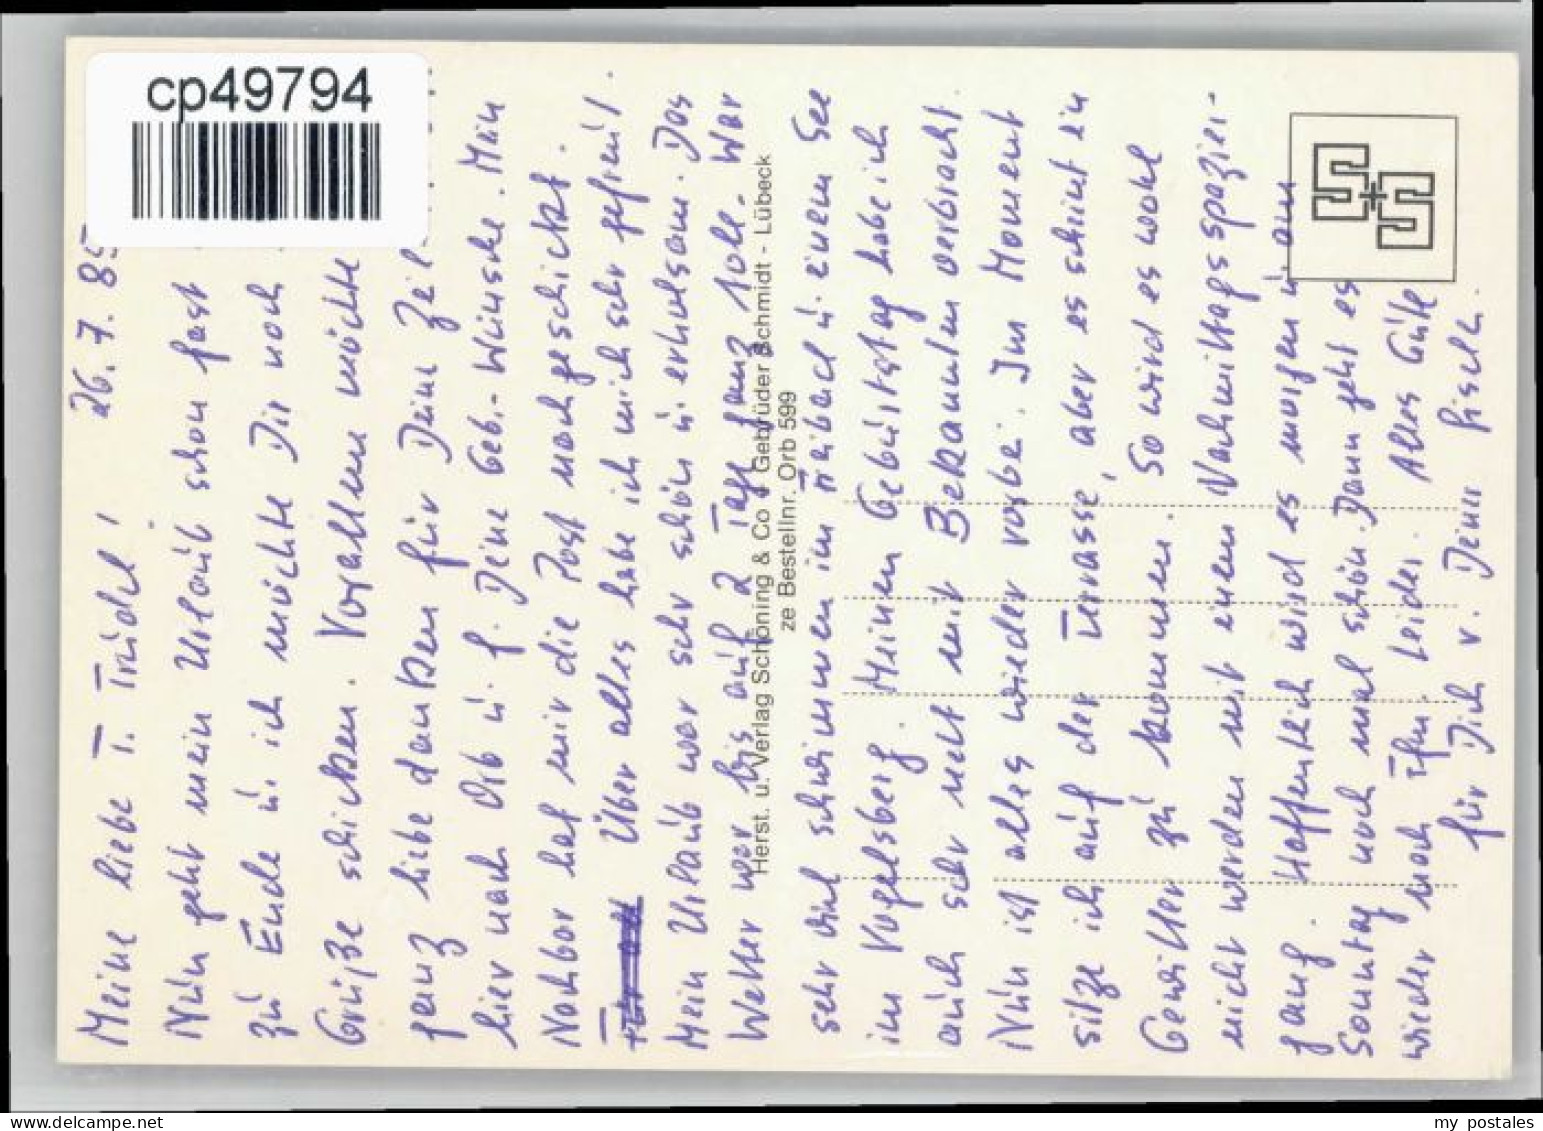 cp49794
26.7.85
Meine liebe T. Trudel!
Nun geht mein Urlaub schon fast
zu Ende u. ich möchte Dir noch
Grüße schicken. Vorallem möchte
ganz liebe danken für Deine Zei-
hier nach Orb u. f. Deine Geb.-Wünsche. Mein
Nachbar hat mir die Post nachgeschickt.
Über alles habe ich mich sehr gefreut.
Mein Urlaub war sehr schön u. erholsam. Das
Wetter war bis auf 2 Tage ganz toll. War
sehr viel schwimmen im u. einem See
im Vogelsberg. Meinen Geburtstag habe ich
auch sehr nett mit Bekannten verbracht.
Nun ist alles wieder vorbei. Im Moment
sitze ich auf der Terrasse, aber es scheint ein
Gewitter zu kommen. So wird es wohl
nicht werden mit einem Nachmittagsspazier-
gang. Hoffentlich wird es morgen u. am
Sonntag noch mal schön. Dann geht es
wieder nach Ffm. leider. Alles Gute
für Dich v. Deiner Gisela.
Herst. u. Verlag Schöning & Co + Gebrüder Schmidt - Lübeck
ze Bestellnr. Orb 599
S+S
my postales